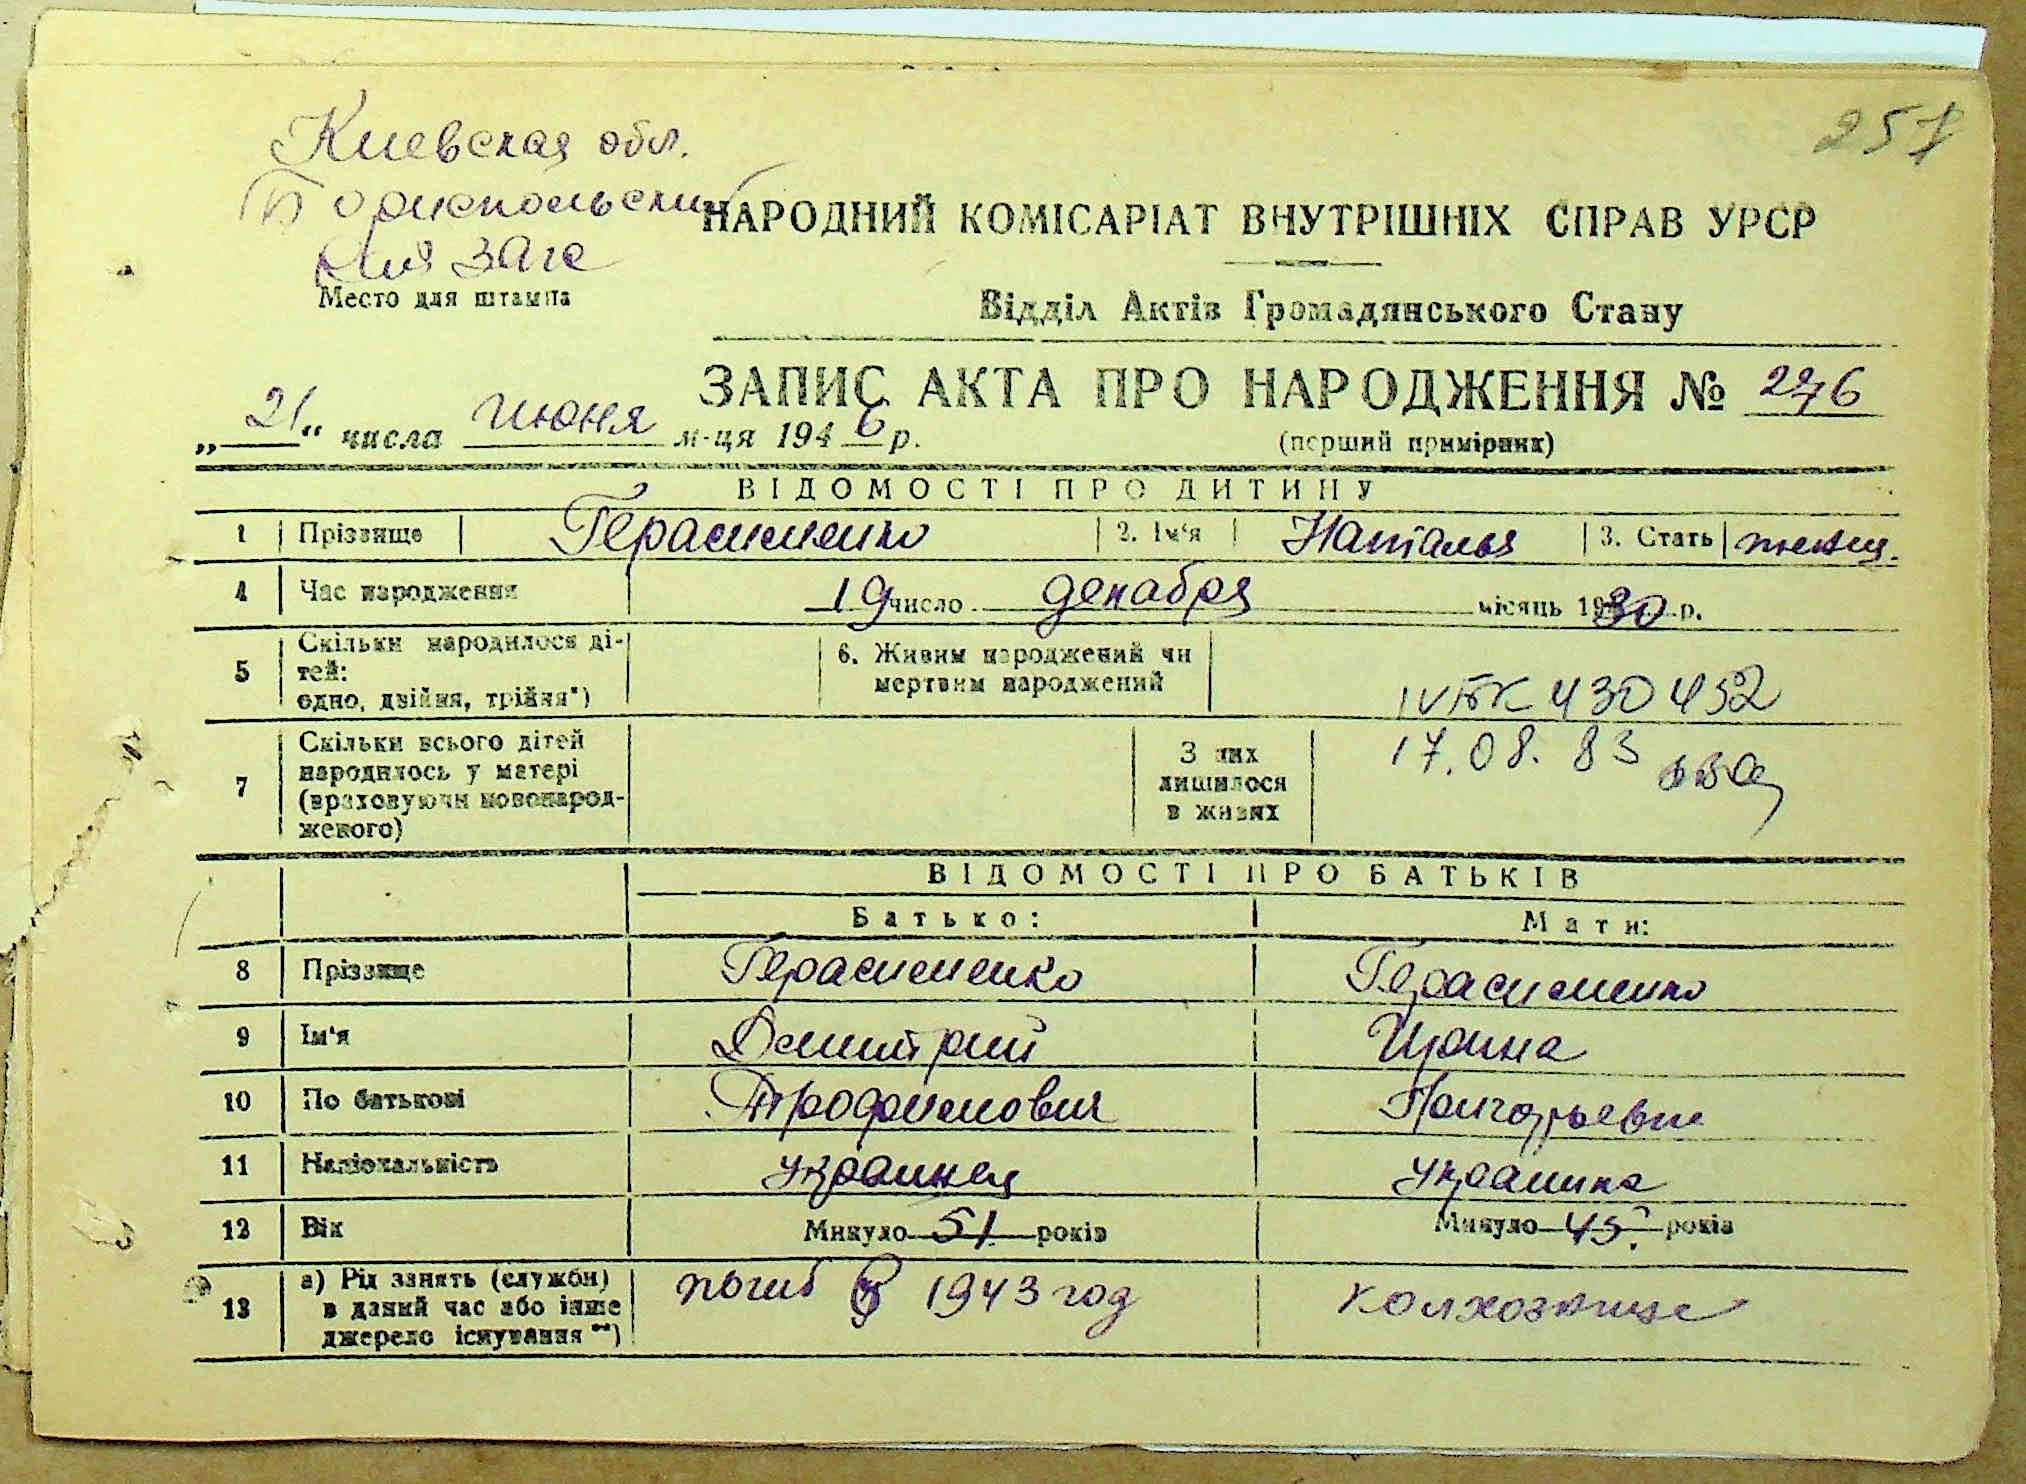 257
Киевская обл.
Бориспольский
Рай ЗАГС
Место для штампа
НАРОДНИЙ КОМІСАРІАТ ВНУТРІШНІХ СПРАВ УРСР
Відділ Актів Громадянського Стану
ЗАПИС АКТА ПРО НАРОДЖЕННЯ № 276
„21“ числа июня м-ця 1946 р.
(перший примірник)
ВІДОМОСТІ ПРО ДИТИНУ
1 Прізвище Герасименко 2. Ім'я Наталья 3. Стать женщ.
4 Час народження 19 число декабря місяць 1930 р.
5 Скільки народилося ді-
тей:
одно, двійня, трійня*)
6. Живим народжений чи
мертвим народжений
IV БК 430452
17.08.83
7 Скільки всього дітей
народилось у матері
(враховуючи новонарод-
женого)
З них
лишилося
в живих
ВІДОМОСТІ ПРО БАТЬКІВ
Батько: Мати:
8 Прізвище Герасименко Герасименко
9 Ім'я Димитрий Ирина
10 По батькові Трофимович Григорьевна
11 Національність украинец украинка
12 Вік Минуло 51 років Минуло 45 років
13 а) Рід занять (служби)
в даний час або інше
джерело існування **)
погиб в 1943 год
колхозница